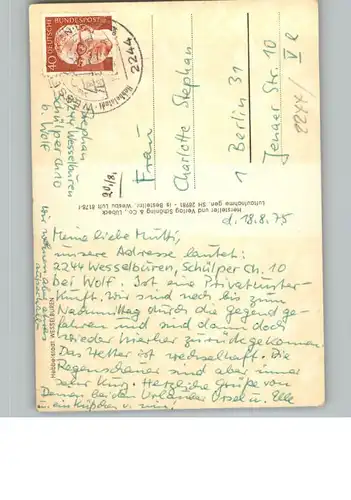 DEUTSCHE BUNDESPOST
40
2244
Frau
Charlotte Stephan
1 Berlin 31
Jenaer Str. 10
Stephan
2244 Wesselburen
Schülper Ch. 10
b. Wolf
20/8.
Hersteller und Verlag Schöning & Co., Lübeck
Hebbelstadt WESSELBUREN
d. 18.8.75
Meine liebe Mutti,
unsere Adresse lautet:
2244 Wesselburen, Schülper Ch. 10
bei Wolf. Ist eine Privatunter-
kunft. Wir sind noch bis zum
Nachmittag durch die Gegend ge-
fahren und sind dann doch
wieder hierher zurückgekommen.
Das Wetter ist wechselhaft. Die
Regenschauer sind aber immer
sehr kurz. Herzliche Grüße von
Deinen beiden Urlauber Ursel u.
u. ein Küßchen v. mir!